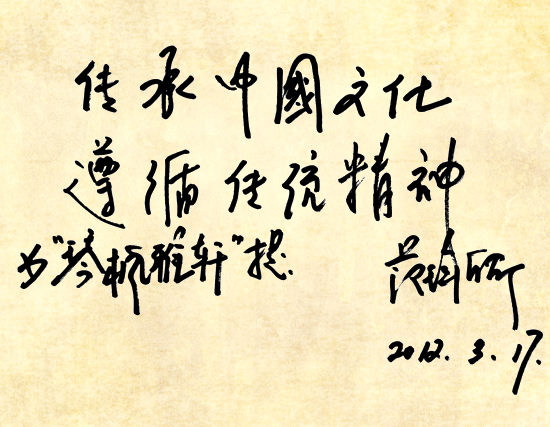 传承中國文化
遵循传统精神
为"琴杭雅轩"提.
2012.3.17.